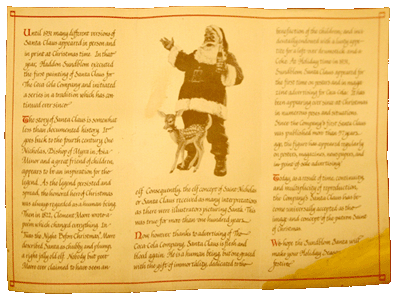 Until 1931 many different versions of
Santa Claus appeared in person and
in print at Christmas time. In that
year, Haddon Sundblom executed
the first painting of Santa Claus for
The Coca-Cola Company, and initiated
a series in a tradition which has con-
tinued ever since.
The story of Santa Claus is somewhat
less than documented history. It
goes back to the fourth century. One
Nicholas, Bishop of Myra in Asia
Minor and a great friend of children,
appears to be an inspiration for the
legend. As the legend persisted and
spread, the honored hero of Christmas
was always regarded as a human being.
Then in 1822, Clement Moore wrote a
poem which changed everything. In
"Twas the Night Before Christmas," Moore
described Santa as chubby and plump,
a right jolly old elf. Nobody but poet
Moore ever claimed to have seen an
elf. Consequently, the elf concept of Saint Nicholas
or Santa Claus received as many interpretations
as there were illustrators picturing Santa. This
was true for more than one hundred years.
Now, however, thanks to advertising of The
Coca-Cola Company, Santa Claus is flesh and
blood again. He is a human being, but one graced
with the gift of immortality, dedicated to the
benefaction of the children, and one
evidently endowed with a lusty appe-
tite for a left over drumstick and a
Coke. At Holiday time in
Sundblom Santa Claus appeared for
the first time on posters and in maga-
zine advertising for Coca-Cola. It has
been appearing ever since at Christmas
in numerous poses and situations.
Since the Company's first Santa Claus
was published more than
ago, the figure has appeared regularly
in posters, magazines, newspapers, and
point of sale advertising.
Today, as a result of time, continuity,
and multiplicity of reproduction,
the Company's Santa Claus has be-
come universally accepted as the
image and concept of the patron Saint
of Christmas.
We hope the Sundblom Santa will
make your Holiday
festive.